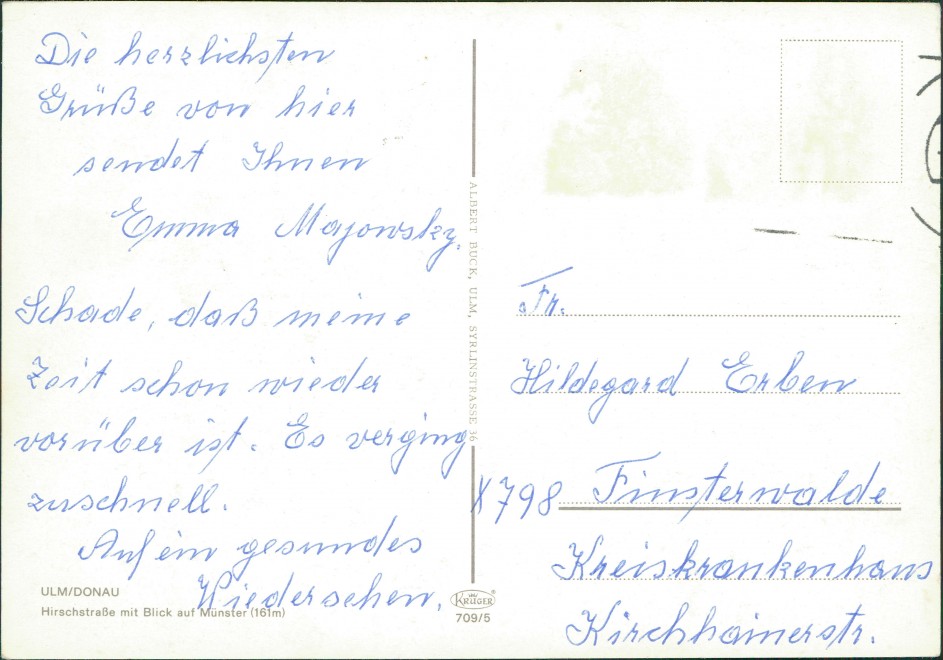 Die herzlichsten
Grüße von hier
sendet Ihnen
Emma Majowsky.
Schade, daß meine
Zeit schon wieder
vorüber ist. Es verging
zuschnell.
Auf ein gesundes
Wiedersehen.
ULM/DONAU
Hirschstraße mit Blick auf Münster (161m)
ALBERT BUCK, ULM, SYRLINSTRASSE 36
KRÜGER
709/5
Fr.
Hildegard Erben
X798 Finsterwalde
Kreiskrankenhaus
Kirchhainerstr.